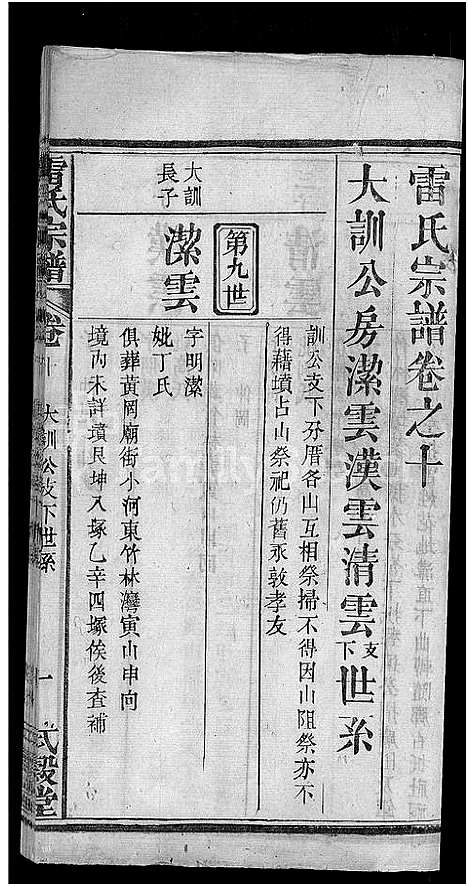 雷氏宗譜卷之十
大訓公房潔雲漢雲清雲支下世系
訓公支下分厝各山互相祭掃不得因山阻祭亦不
得藉墳占山祭祀仍舊永敦孝友
第九世
大訓
長子
潔雲
字明潔
妣丁氏
俱葬黃岡廟街小河東竹林灣寅山申向
境內未詳墳艮坤入塚乙辛四塚俟後查補
雷氏宗譜 卷十 大訓公支下世系 一 式穀堂